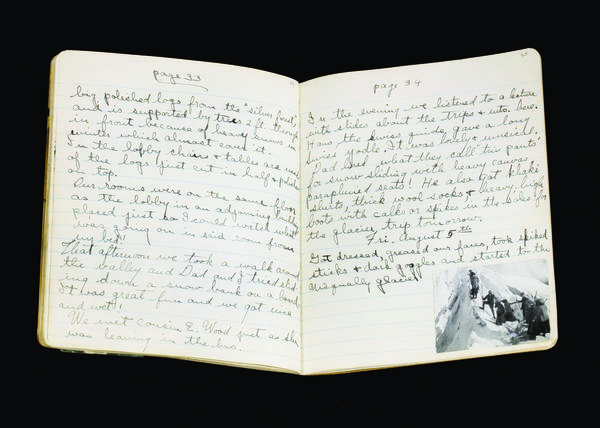 page 33
big polished logs from the "silver forest"
and is supported by trees 2 ft. through
in front because of heavy snows in
winter which almost cover it.
In the lobby chairs & tables are made
of the logs just cut in half & polished
on top.
Our rooms were on the same floor
as the lobby in an adjoining build
placed just so I could watch what
was going on in said room from
my bed!!
That afternoon we took a walk around
the valley and Dad and I tried slid-
ing down a snow bank on a board
It was great fun and we got nice
and wet!!
We met cousin E. Wood just as she
was leaving in the bus.
page 34
In the evening we listened to a lecture
with slides about the trips & etc. here.
Hans the swiss guide, gave a long
swiss yodle. It was lovely & musical.
Dad and what they call tin pants
for snow sliding with heavy canvas
paraphined seats! He also got khaki
shirts, thick wool socks & heavy, high
boots with calks or spikes in the soles for
the glacier trip tomorrow.
Fri. August 5th
Got dressed, greased our faces, took spiked
sticks & dark goggles and started to the
Nisqually glacier!